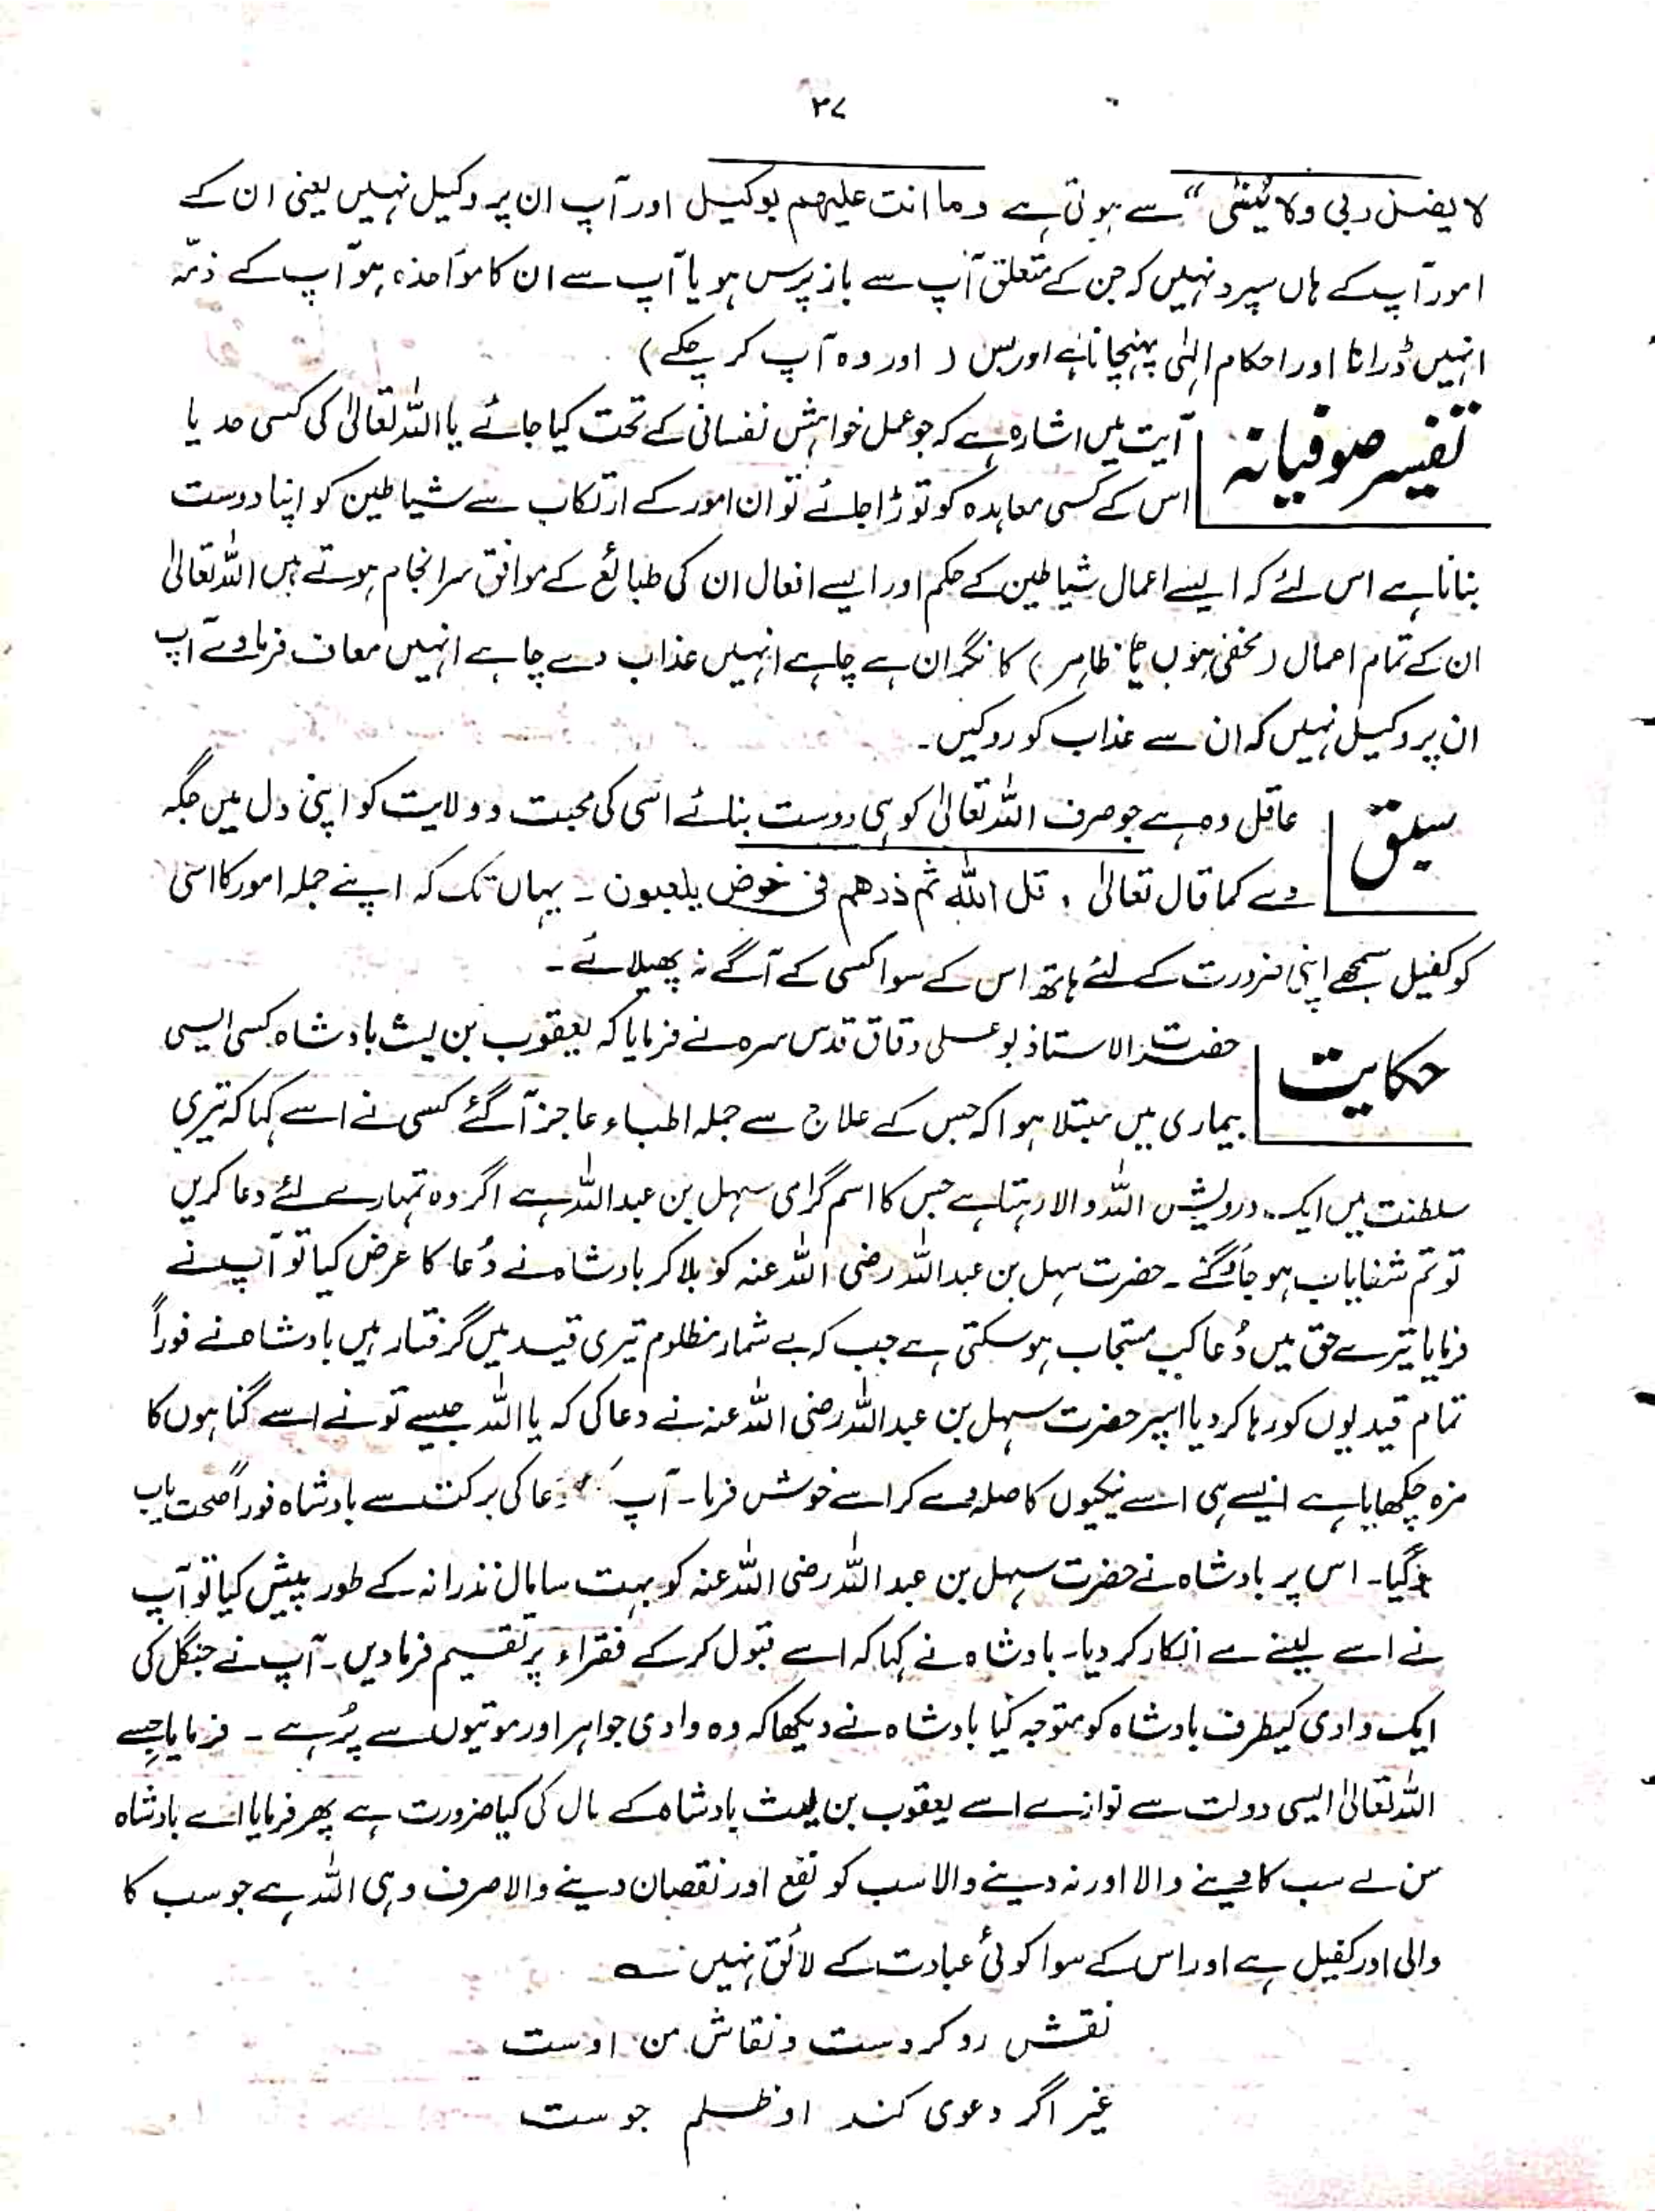 ۳۷
لا یضل ربی ولا ینسٰی“ سے ہوتی ہے وما انت علیہم بوکیل اور آپ ان پر وکیل نہیں یعنی ان کے
امور آپ کے ہاں سپرد نہیں کہ جن کے متعلق آپ سے باز پرس ہو یا آپ سے ان کا مواخذہ ہو آپ کے ذمّہ
انہیں ڈرانا اور احکام الہٰی پہنچانا ہے اور بس ( اور وہ آپ کر چکے )
تفسیر صوفیانہ
آیت میں اشارہ ہے کہ جو عمل خواہش نفسانی کے تحت کیا جائے یا اللہ تعالیٰ کی کسی حد یا
اس کے کسی معاہدہ کو توڑا جائے تو ان امور کے ارتکاب سے شیاطین کو اپنا دوست
بنانا ہے اس لئے کہ ایسے اعمال شیاطین کے حکم اور ایسے افعال ان کی طبائع کے موافق سرانجام ہوتے ہیں اللہ تعالیٰ
ان کے تمام اعمال ( مخفی ہوں یا ظاہر ) کا نگران ہے چاہے انہیں عذاب دے چاہے انہیں معاف فرمادے آپ
ان پر وکیل نہیں کہ ان سے عذاب کو روکیں۔
سبق
عاقل وہ ہے جو صرف اللہ تعالیٰ کو ہی دوست بنائے اسی کی محبت و ولایت کو اپنی دل میں جگہ
دے کما قال تعالیٰ ، قل اللہ ثم ذرھم فی خوض یلعبون ۔ یہاں تک کہ اپنے جملہ امور کا اسی
کو کفیل سمجھے اپنی ضرورت کے لئے ہاتھ اس کے سوا کسی کے آگے نہ پھیلائے۔
حکایت
حضرت الاستاذ بو علی دقاق قدس سرہ نے فرمایا کہ یعقوب بن لیث بادشاہ کسی ایسی
بیماری میں مبتلا ہوا کہ جس کے علاج سے جملہ اطباء عاجز آگئے کسی نے اسے کہا کہ تیری
سلطنت میں ایک درویش اللہ والا رہتا ہے جس کا اسم گرامی سہل بن عبداللہ ہے اگر وہ تمہارے لئے دعا کریں
تو تم شفایاب ہو جاؤ گے ۔ حضرت سہل بن عبداللہ رضی اللہ عنہ کو بلا کر بادشاہ نے دُعا کا عرض کیا تو آپ نے
فرمایا تیرے حق میں دُعا کب مستجاب ہو سکتی ہے جب کہ بے شمار مظلوم تیری قید میں گرفتار ہیں بادشاہ نے فوراً
تمام قیدیوں کو رہا کر دیا اسپر حضرت سہل بن عبداللہ رضی اللہ عنہ نے دعا کی کہ یا اللہ جیسے تو نے اسے گناہوں کا
مزہ چکھایا ہے ایسے ہی اسے نیکیوں کا صلہ دے کر اسے خوش فرما ۔ آپ دعا کی برکت سے بادشاہ فوراً صحت یاب
ہو گیا۔ اس پر بادشاہ نے حضرت سہل بن عبداللہ رضی اللہ عنہ کو بہت سا مال نذرانہ کے طور پیش کیا تو آپ
نے اسے لینے سے انکار کر دیا۔ بادشاہ نے کہا کہ اسے قبول کر کے فقراء پر تقسیم فرمادیں۔ آپ نے جنگل کی
ایک وادی کیطرف بادشاہ کو متوجہ کیا بادشاہ نے دیکھا کہ وہ وادی جواہر اور موتیوں سے پُر ہے ۔ فرمایا جسے
اللہ تعالیٰ ایسی دولت سے نوازے اسے یعقوب بن لیث بادشاہ کے مال کی کیا ضرورت ہے پھر فرمایا اے بادشاہ
سن لے سب کا دینے والا اور نہ دینے والا سب کو نفع اور نقصان دینے والا صرف وہی اللہ ہے جو سب کا
والی اور کفیل ہے اور اس کے سوا کوئی عبادت کے لائق نہیں ؎
نقش رو کردست ونقاش من اوست
غیر اگر دعوی کند او ظلم جوست